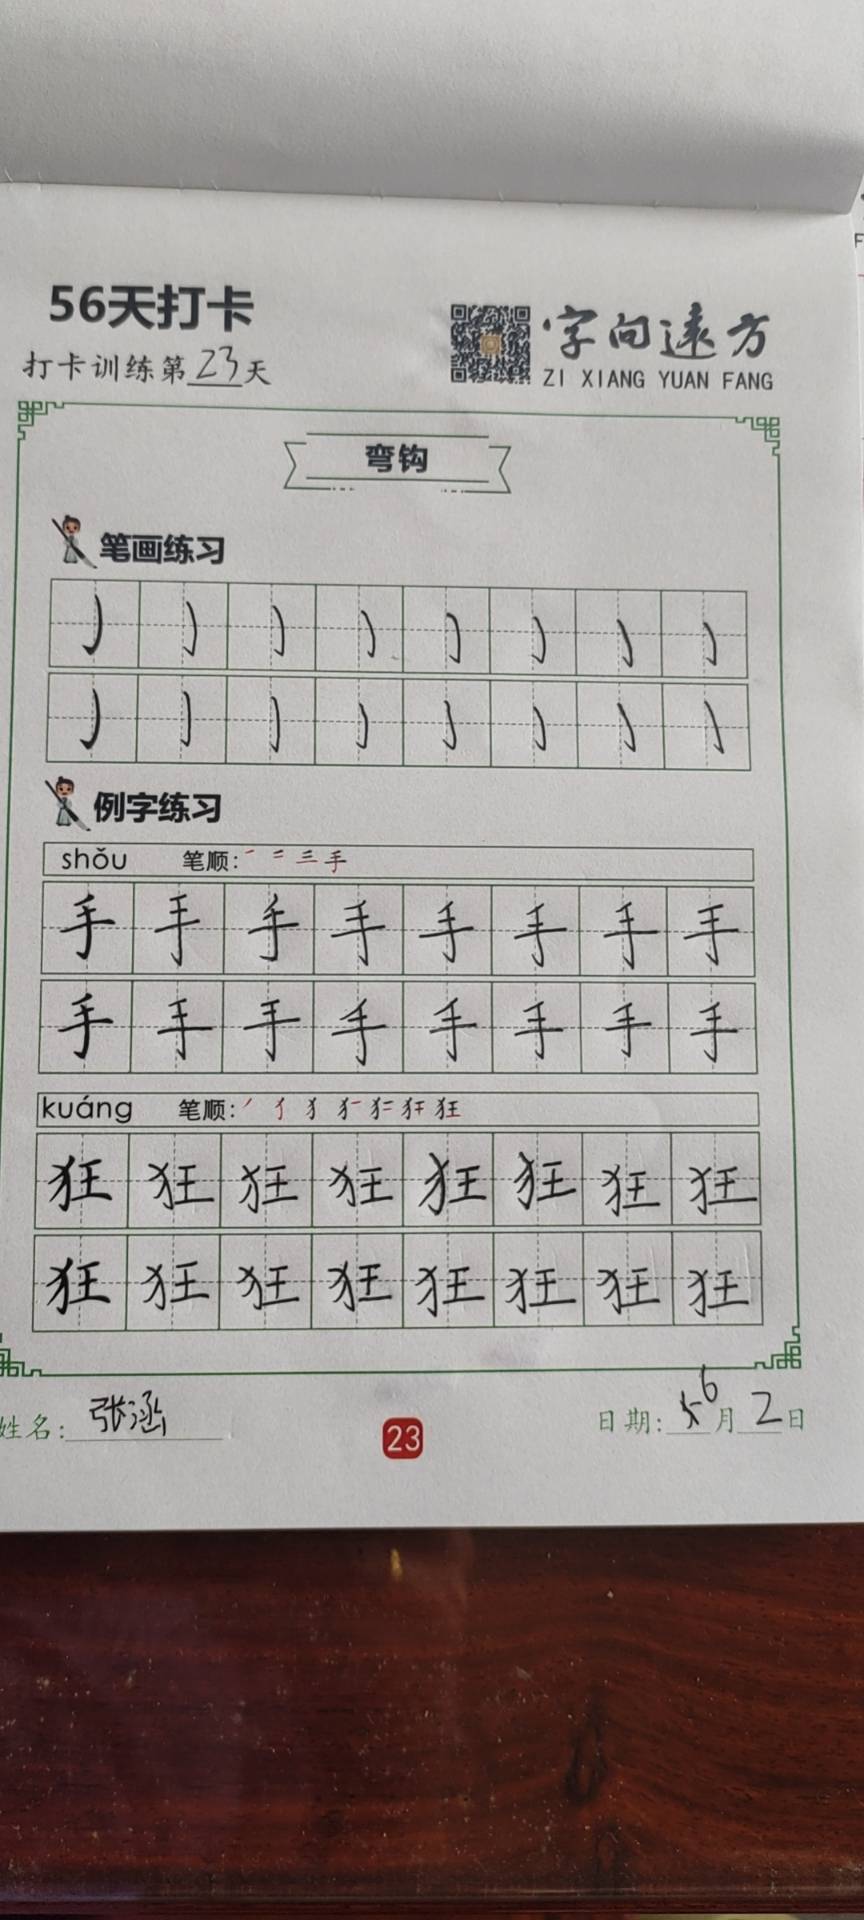 56天打卡
打卡训练第23天
字向远方
ZI XIANG YUAN FANG
弯钩
笔画练习
㇁ ㇁ ㇁ ㇁ ㇁ ㇁ ㇁ ㇁
㇁ ㇁ ㇁ ㇁ ㇁ ㇁ ㇁ ㇁
例字练习
shǒu 笔顺: 一 二 三 手
手 手 手 手 手 手 手 手
手 手 手 手 手 手 手 手
kuáng 笔顺: 狂
狂 狂 狂 狂 狂 狂 狂 狂
狂 狂 狂 狂 狂 狂 狂 狂
姓名: 张涵
23
日期: 6月2日